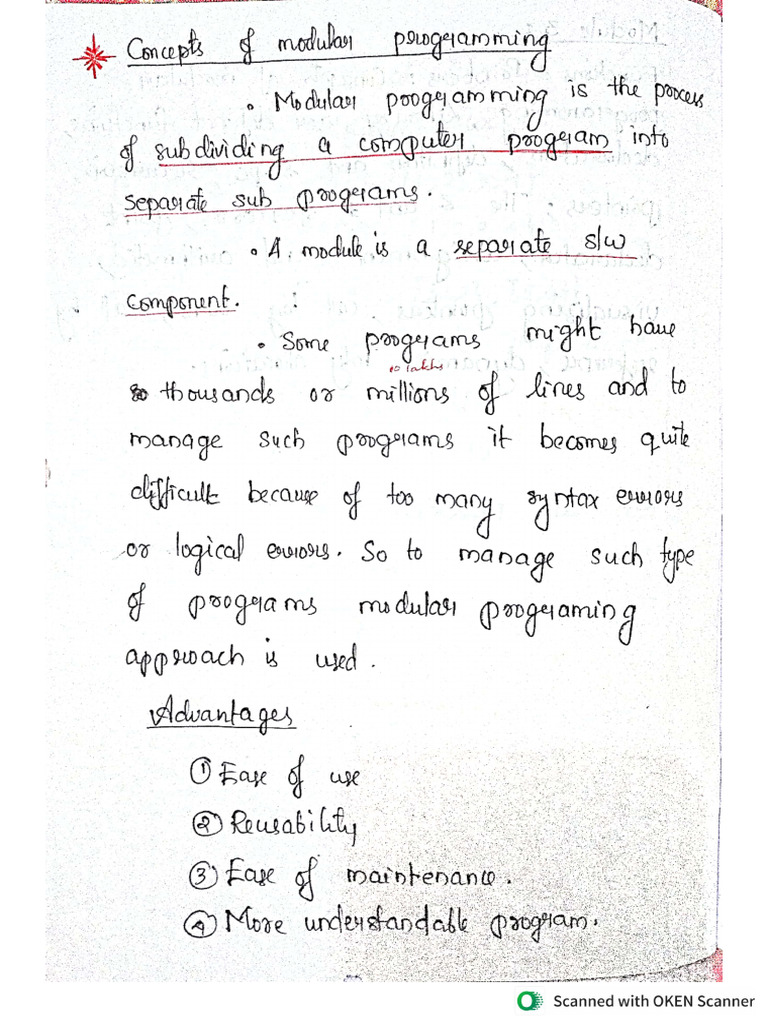 Concepts of modular programming
• Modular programming is the process
of subdividing a computer program into
separate sub programs.
• A. module is a separate s/w
component. :
• Some programs might have
10 lakhs
thousands or millions of lines and to
manage such programs it becomes quite
difficult because of too many syntax errors
or logical errors. So to manage such type
of programs modular programing
approach is used.
Advantages
① Ease of use
② Reusability
③ Ease of maintenance.
④ More understandable program.
Scanned with OKEN Scanner